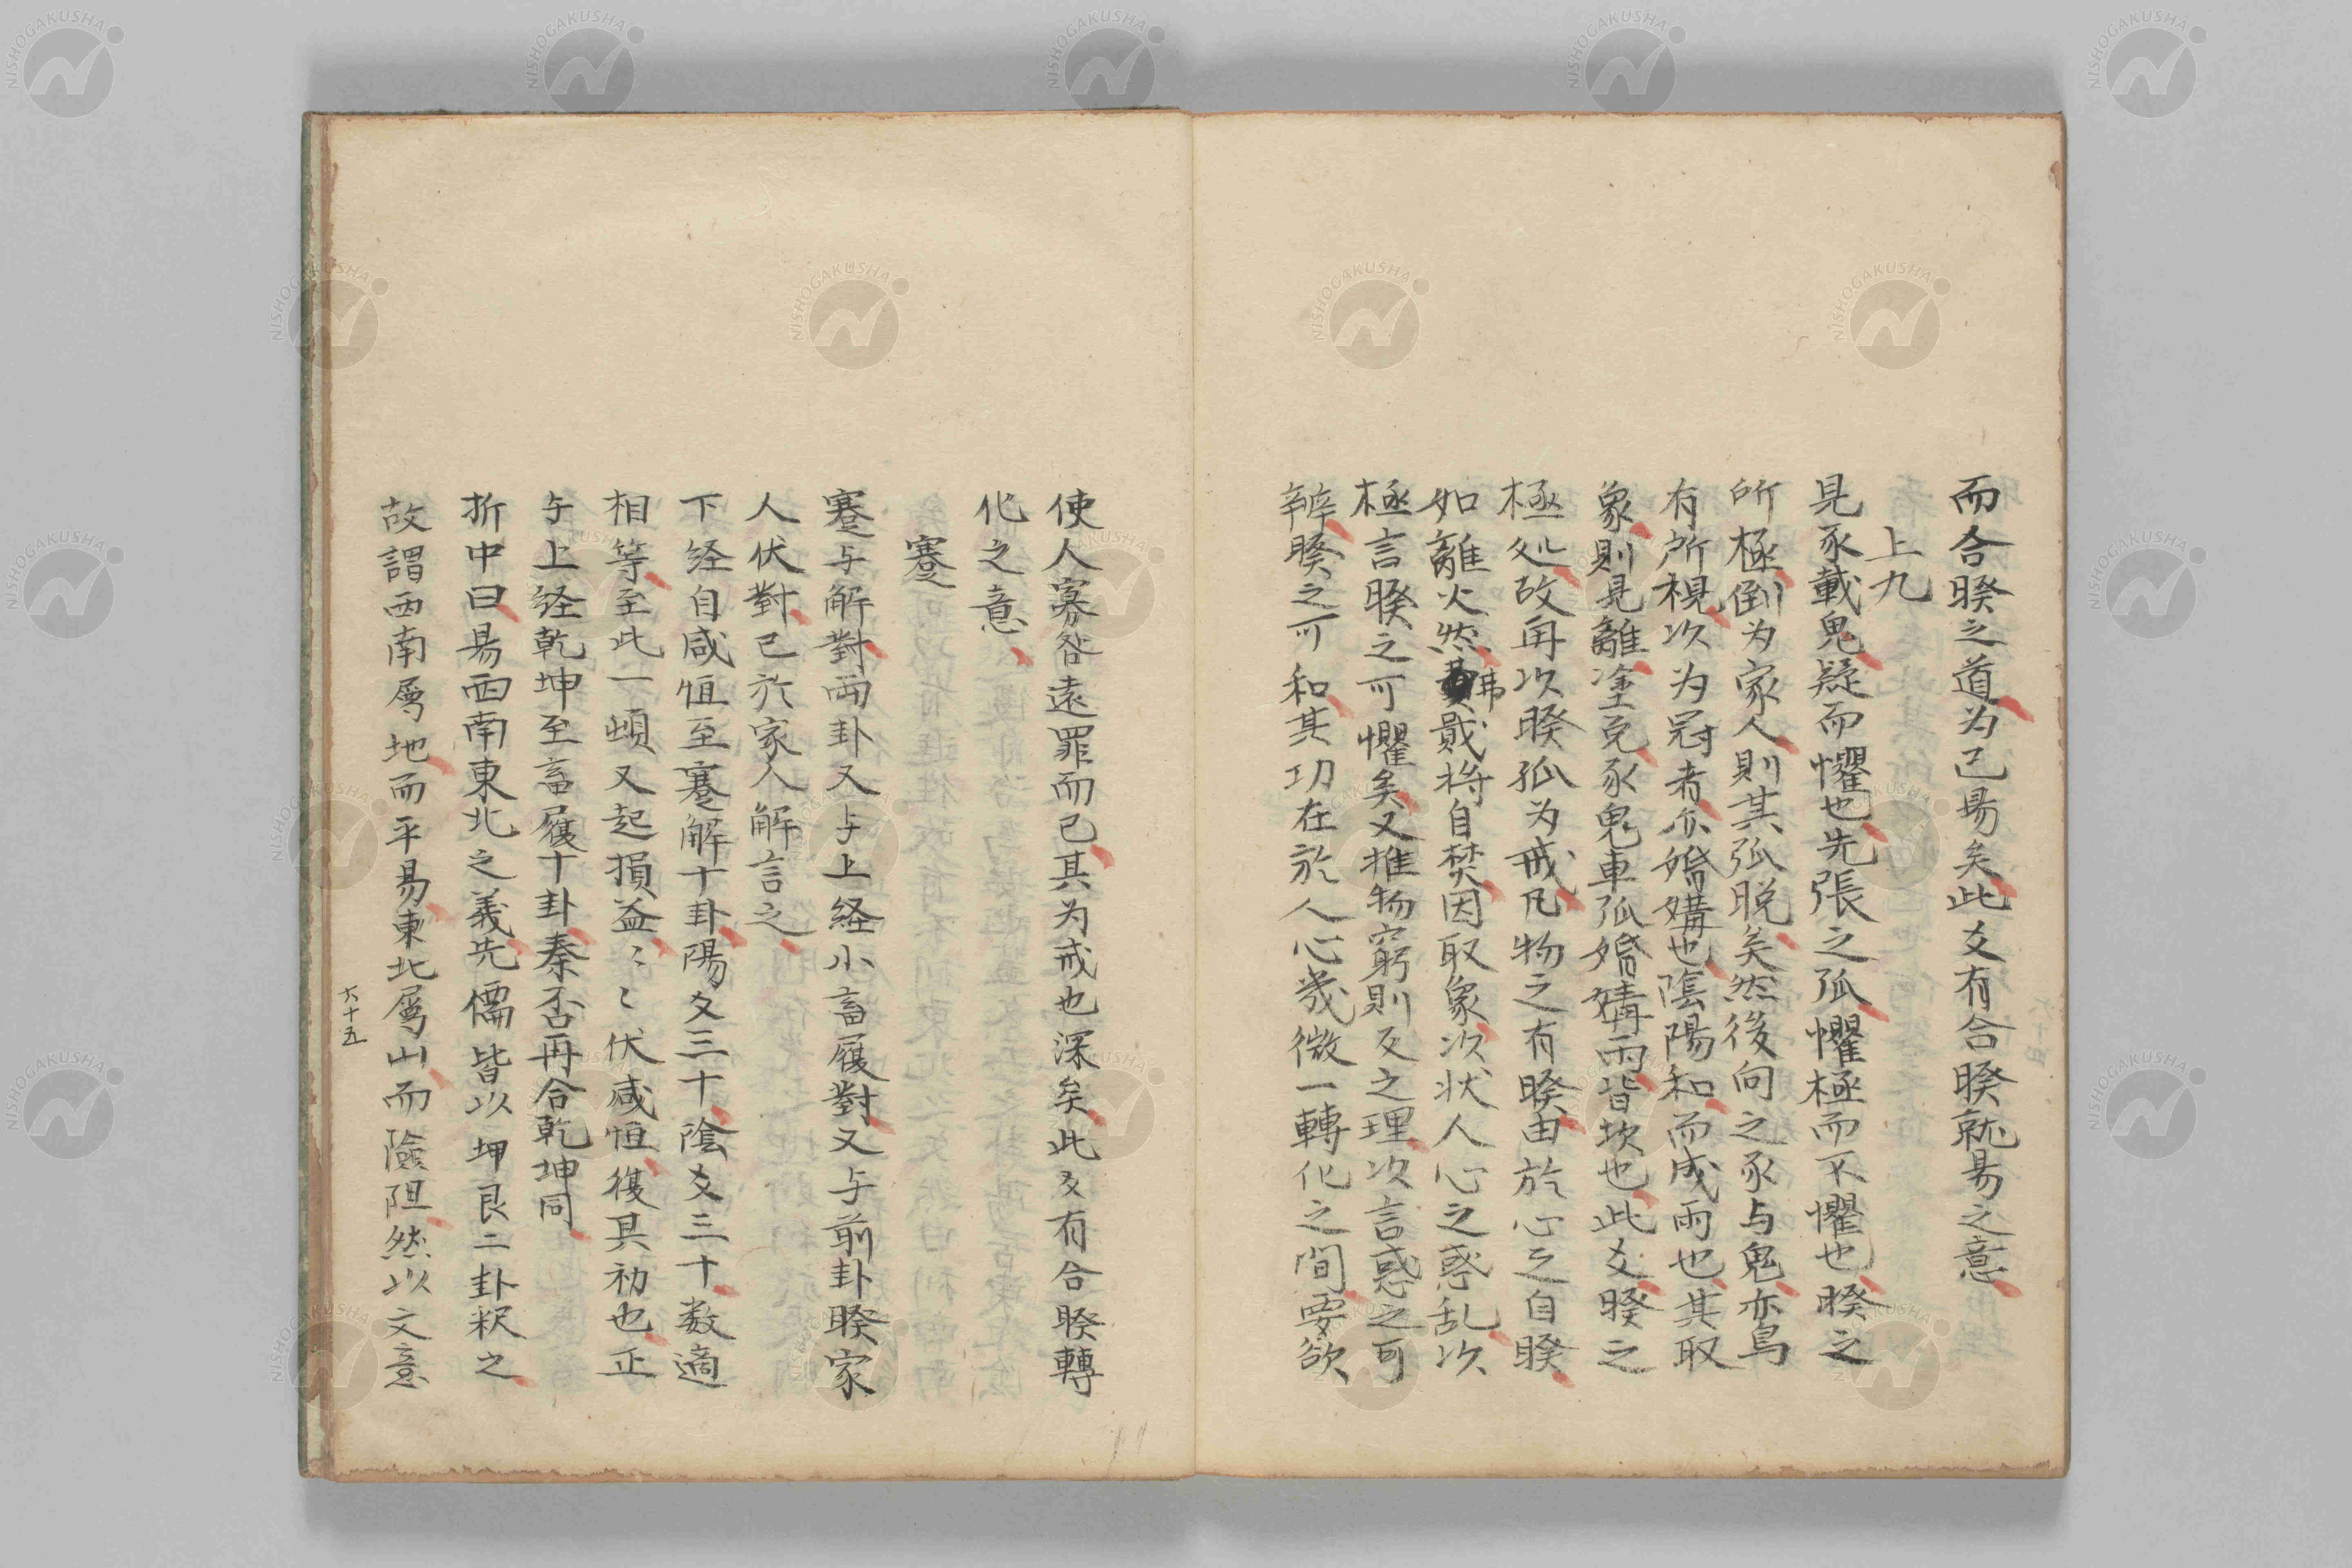 而合睽之道为已易矣此爻有合睽就易之意
上九
見豕載鬼疑而懼也先張之弧懼極而不懼也睽之
所極倒为家人則其弧脱矣然後向之豕与鬼亦烏
有所視次为冠者尒婚媾也陰陽和而成雨也其取
象則見離塗兑豕鬼車弧婚媾雨皆坎也此爻睽之
極処故再次睽孤为戒凡物之有睽由於心之自睽
如離火然弗戢将自焚因取象次状人心之惑乱次
極言睽之可懼矣又推物窮則反之理次言惑之可
辨睽之可和其功在於人心幾微一轉化之間要欲
使人寡咎遠罪而已其为戒也深矣此爻有合睽轉
化之意
蹇
蹇与解對両卦又与上経小畜履對又与前卦睽家
人伏對已於家人解言之
下経自咸恒至蹇解十卦陽爻三十陰爻三十数適
相等至此一頓又起損益〻〻伏咸恒復其初也正
与上経乾坤至畜履十卦泰否再合乾坤同
折中曰易西南東北之義先儒皆以坤艮二卦釈之
故謂西南属地而平易東北属山而險阻然以文意
六十五
NISHOGAKUSHA